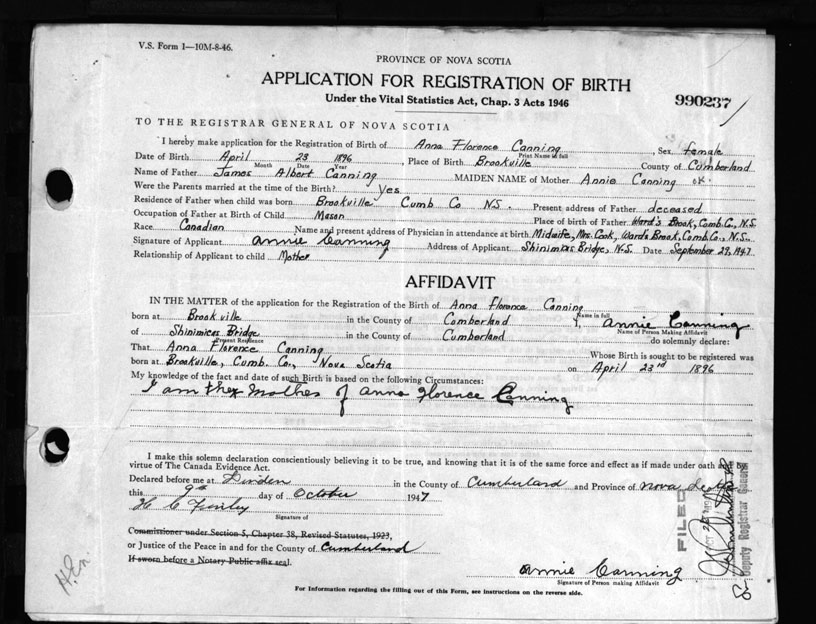 V.S. Form 1—10M-8-46.
PROVINCE OF NOVA SCOTIA
APPLICATION FOR REGISTRATION OF BIRTH
Under the Vital Statistics Act, Chap. 3 Acts 1946
990237
TO THE REGISTRAR GENERAL OF NOVA SCOTIA
I hereby make application for the Registration of Birth of Anna Florence Canning, Sex female
Print Name in full
Date of Birth April 23 1896, Place of Birth Brookville County of Cumberland
Month Date Year
Name of Father James Albert Canning MAIDEN NAME of Mother Annie Canning OK.
Were the Parents married at the time of the Birth? Yes
Residence of Father when child was born Brookville Cumb Co N.S. Present address of Father deceased
Occupation of Father at Birth of Child Mason Place of birth of Father Ward's Brook, Cumb. Co., N.S.
Race Canadian Name and present address of Physician in attendance at birth Midwife, Mrs. Cook, Ward's Brook, Cumb. Co., N.S.
Signature of Applicant Annie Canning Address of Applicant Shinimicas Bridge, N.S. Date September 29, 1947
Relationship of Applicant to child Mother
AFFIDAVIT
IN THE MATTER of the application for the Registration of Birth of Anna Florence Canning
Name in full
born at Brookville in the County of Cumberland I, Annie Canning
Name of Person Making Affidavit
of Shinimicas Bridge in the County of Cumberland do solemnly declare:
Present Residence
That Anna Florence Canning Whose Birth is sought to be registered was
born at Brookville, Cumb. Co., Nova Scotia on April 23rd 1896
My knowledge of the fact and date of such Birth is based on the following Circumstances:
I am the mother of Anna Florence Canning
I make this solemn declaration conscientiously believing it to be true, and knowing that it is of the same force and effect as if made under oath and by
virtue of The Canada Evidence Act.
Declared before me at in the County of Cumberland and Province of Nova Scotia
this 9th day of October 1947
Signature of
Commissioner under Section 5, Chapter 38, Revised Statutes, 1923,
or Justice of the Peace in and for the County of Cumberland
If sworn before a Notary Public affix seal.
Annie Canning
Signature of Person making Affidavit
For Information regarding the filling out of this Form, see instructions on the reverse side.
FILED
Deputy Registrar General